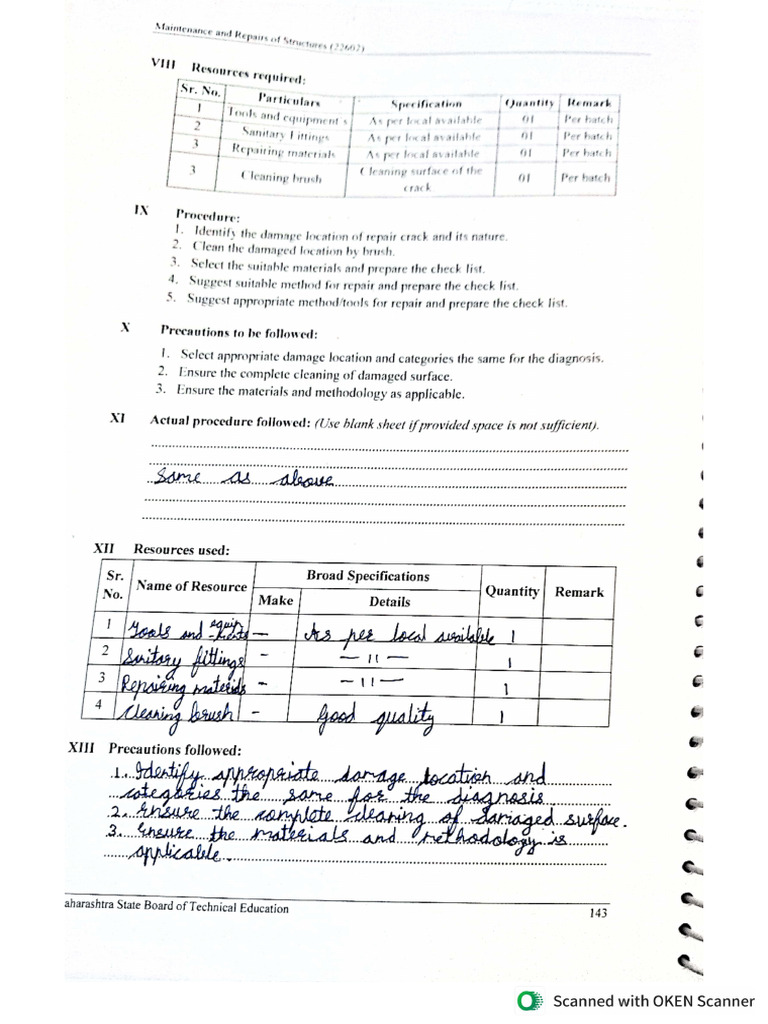 Maintenance and Repairs of Structures (22602)
VIII Resources required:
Sr. No. Particulars Specification Quantity Remark
1 Tools and equipment s As per local available 01 Per batch
2 Sanitary Fittings As per local available 01 Per batch
3 Repairing materials As per local available 01 Per batch
3 Cleaning brush Cleaning surface of the crack. 01 Per batch
IX Procedure:
1. Identify the damage location of repair crack and its nature.
2. Clean the damaged location by brush.
3. Select the suitable materials and prepare the check list.
4. Suggest suitable method for repair and prepare the check list.
5. Suggest appropriate method/tools for repair and prepare the check list.
X Precautions to be followed:
1. Select appropriate damage location and categories the same for the diagnosis.
2. Ensure the complete cleaning of damaged surface.
3. Ensure the materials and methodology as applicable.
XI Actual procedure followed: (Use blank sheet if provided space is not sufficient).
Same as above
XII Resources used:
Sr. No. Name of Resource Broad Specifications Quantity Remark
Make Details
1 Tools and equip-ments — As per local available 1
2 Sanitary fittings - — 11 — 1
3 Repairing materials - — 11 — 1
4 Cleaning brush - Good quality 1
XIII Precautions followed:
1. Identify appropriate damage location and
categories the same for the diagnosis
2. Ensure the complete cleaning of damaged surface.
3. Ensure the materials and methodology is
applicable.
aharashtra State Board of Technical Education 143
Scanned with OKEN Scanner